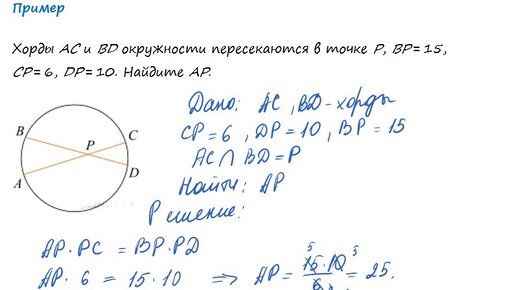 Пример
Хорды AC и BD окружности пересекаются в точке P, BP= 15,
CP= 6, DP= 10. Найдите AP.
Дано: AC, BD - хорды
CP = 6, DP = 10, BP = 15
AC ∩ BD = P
Найти: AP
Решение:
B
C
P
A
D
AP · PC = BP · PD
AP · 6 = 15 · 10 ⇒ AP = 15 · 10 / 6 = 25.
5
5